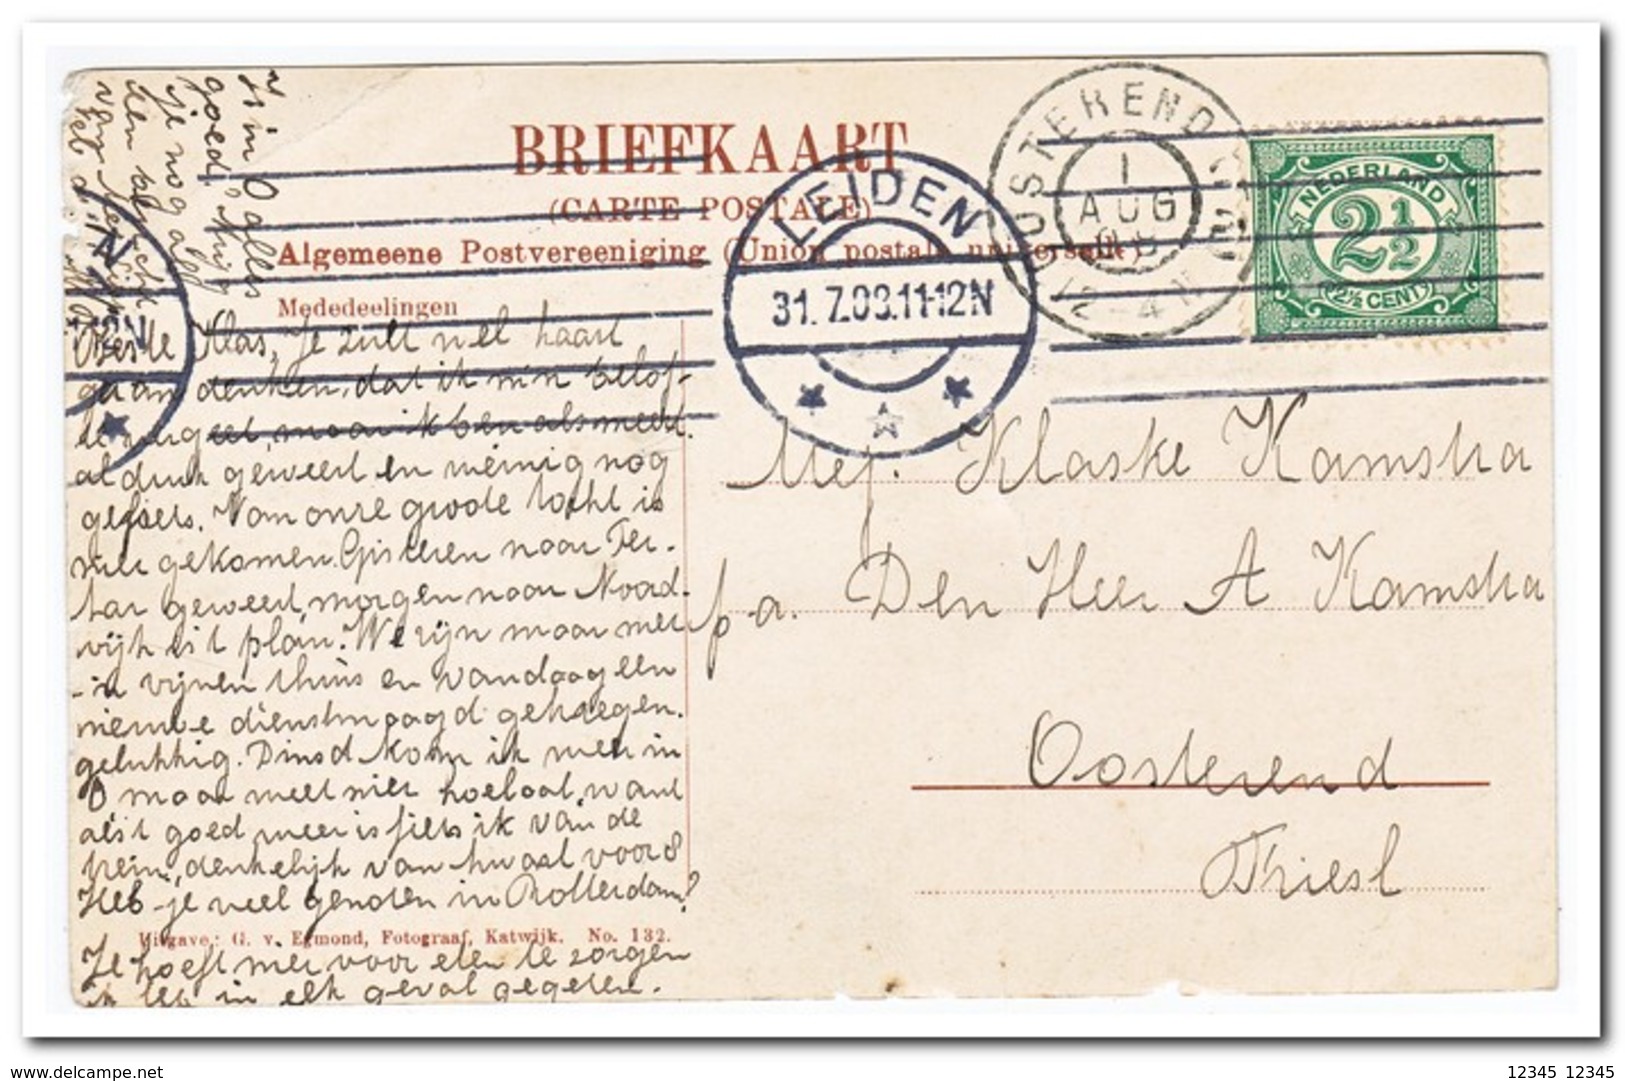 BRIEFKAART
(CARTE POSTALE)
Algemeene Postvereeniging (Union postale universelle)
Mededeelingen
LEIDEN
31.7.08.11-12N
OOSTEREND
1
AUG
08
NEDERLAND
2½
2½ CENT
Is in O alles
goed.
je nog
Beste Klas, Je zult wel haast
gaan denken, dat ik m'n belof-
te vergeet, maar ik ben als meest.
al druk geweest en weinig nog
gefietst. Van onze groote tocht is
niet gekomen. Gisteren naar Ter-
aar geweest, morgen naar Noord-
wijk is 't plan. We zijn maar met
vijven thuis en vandaag een
nieuwe dienstmaagd gekregen.
gelukkig. Dinsd kom ik weer in
O maar weet niet hoelaat, want
als 't goed weer is fiets ik van de
trein, denkelijk van kwart voor 8
Heb je veel genoten in Rotterdam?
Uitgave: G. v. Egmond, Fotograaf, Katwijk. No. 132.
Je hoeft niet voor eten te zorgen
ik heb in elk geval gegeten.
Mej. Klaske Kamstra
p.a. Den Heer A Kamstra
Oosterend
Friesl
12345 12345